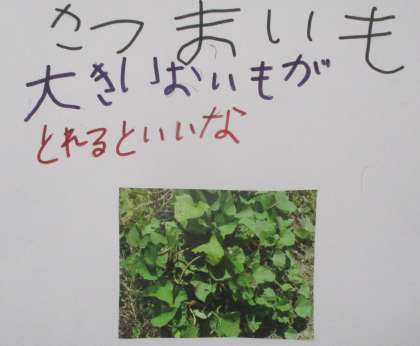 さつまいも
大きいおいもが
とれるといいな